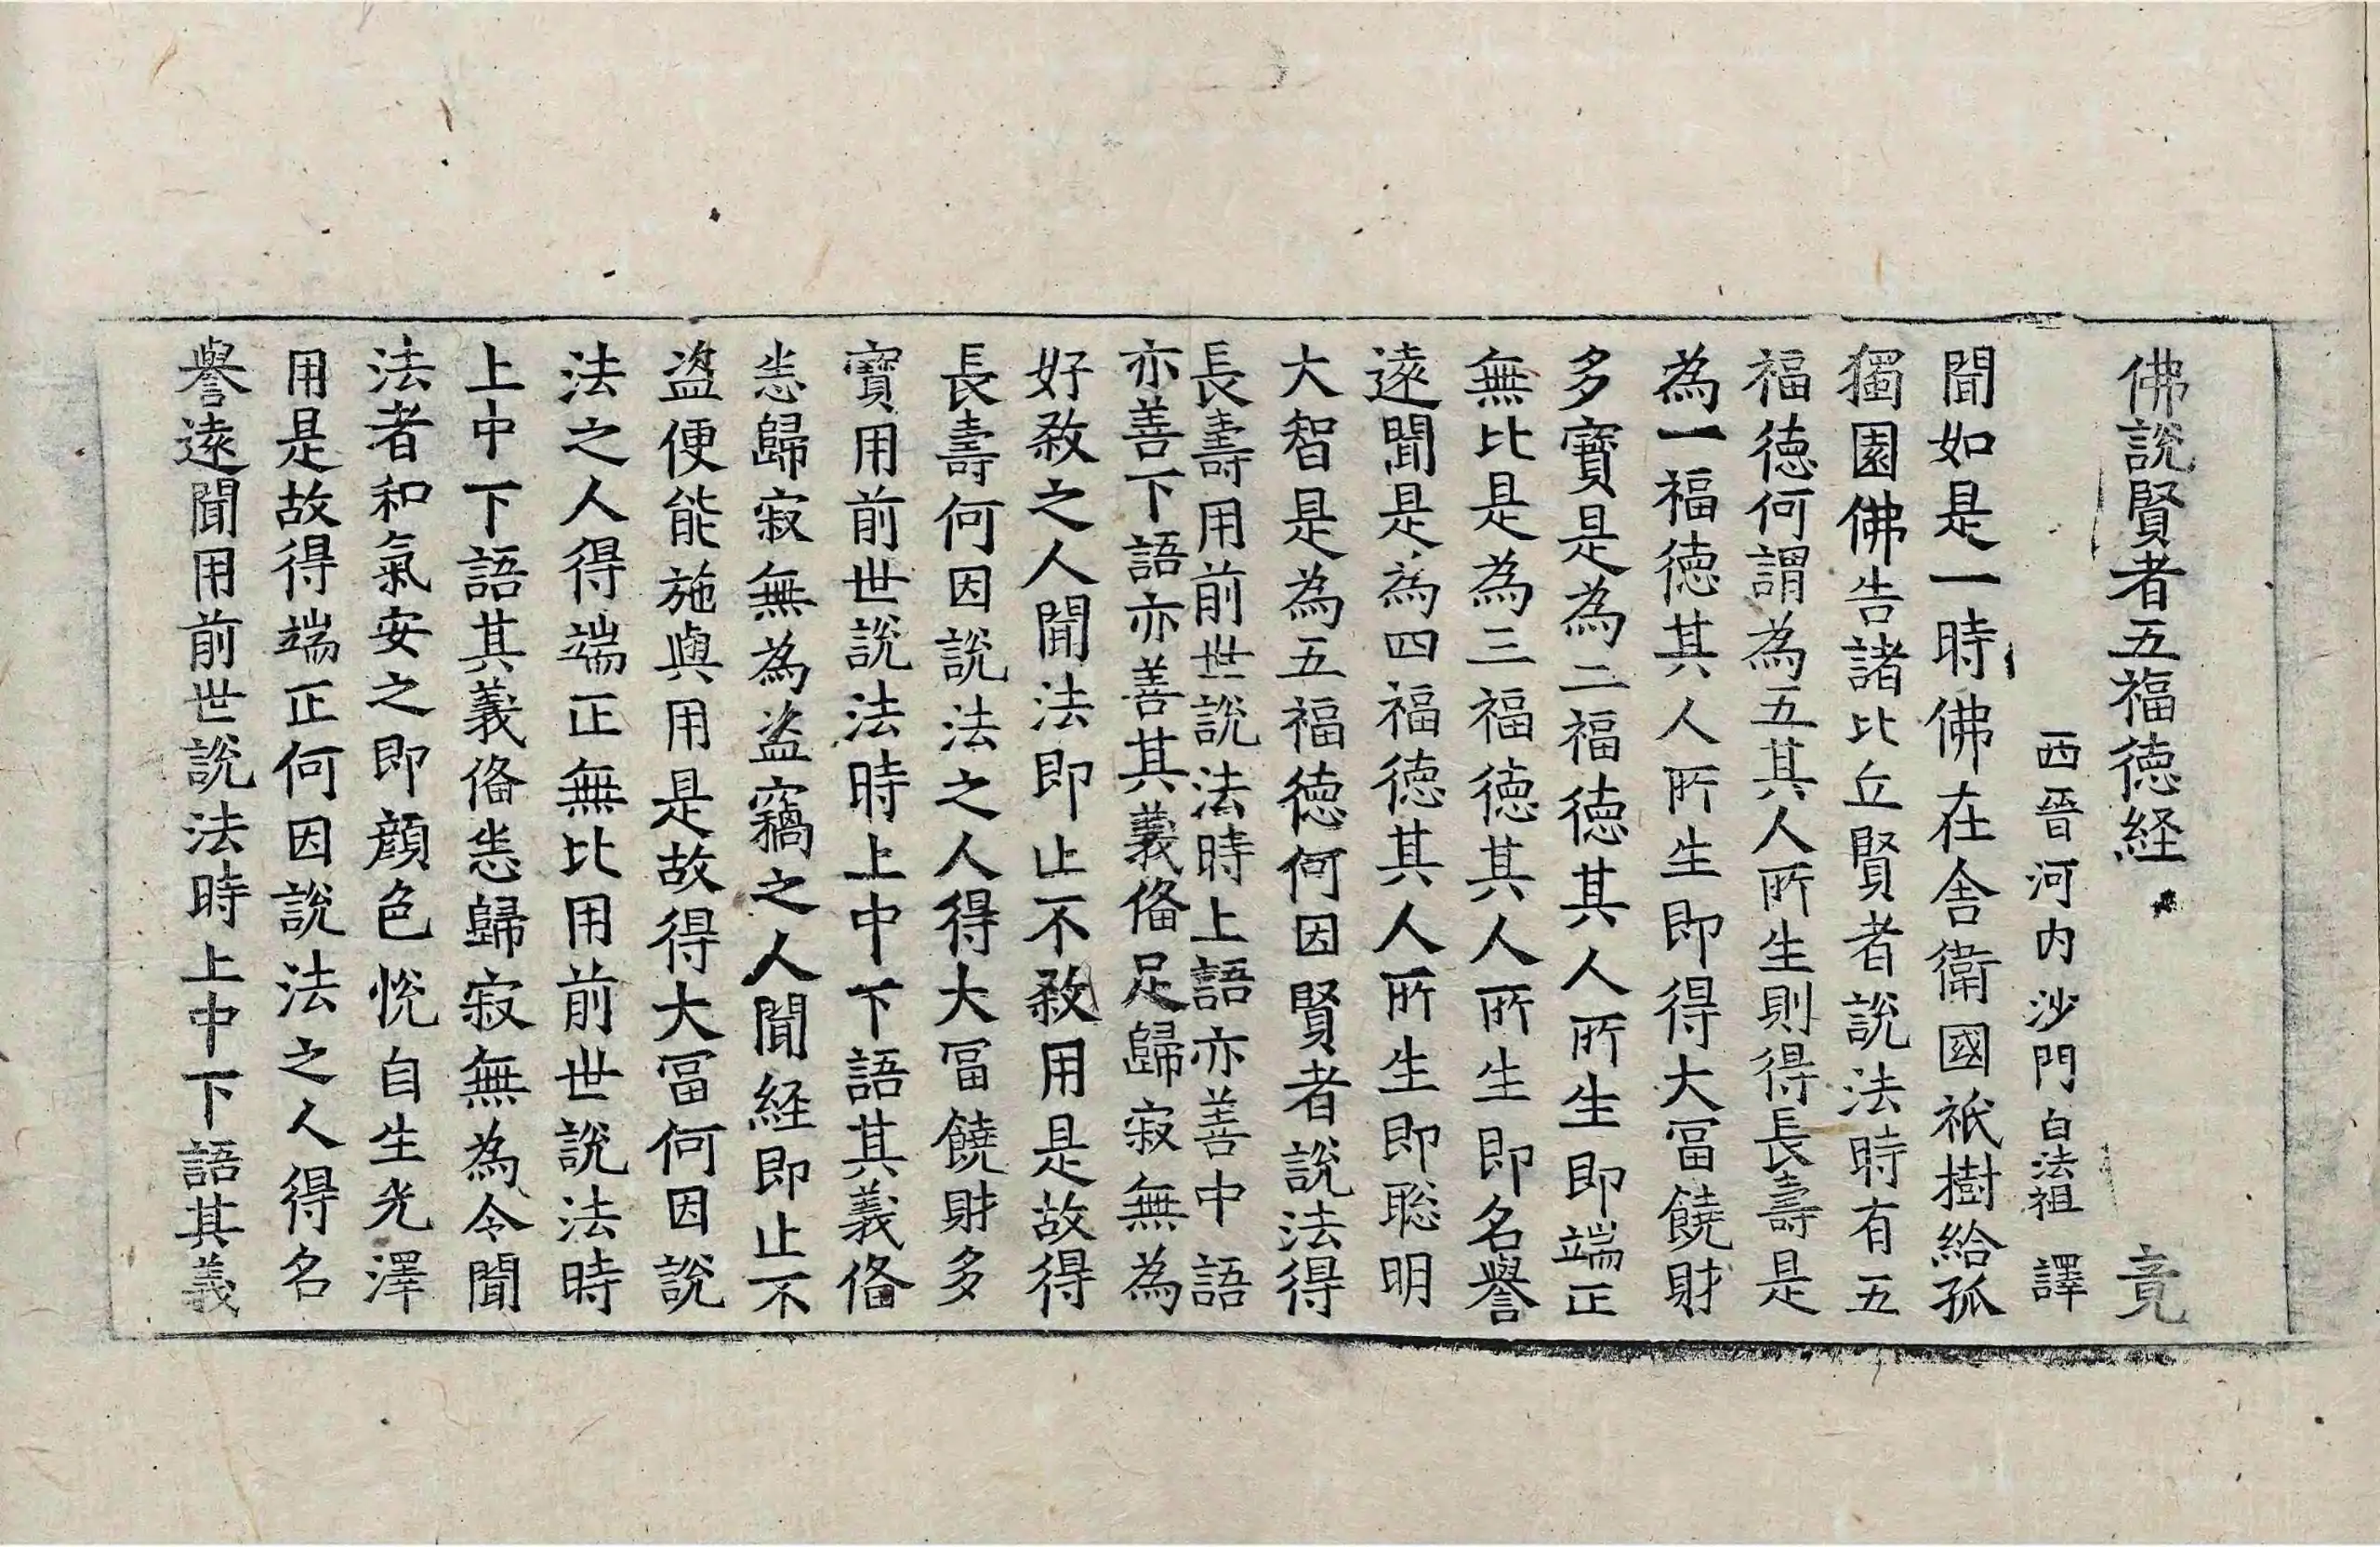 佛說賢者五福德経 竟
西晉河内沙門白法祖 譯
聞如是一時佛在舎衛國祇樹給孤
獨園佛告諸比丘賢者說法時有五
福徳何謂為五其人所生則得長壽是
為一福徳其人所生即得大冨饒財
多寶是為二福徳其人所生即端正
無比是為三福徳其人所生即名譽
逺聞是為四福徳其人所生即聡明
大智是為五福徳何因賢者說法得
長壽用前世說法時上語亦善中語
亦善下語亦善其義俻足歸寂無為
好殺之人聞法即止不殺用是故得
長壽何因說法之人得大冨饒財多
寶用前世說法時上中下語其義俻
悉歸寂無為盗竊之人聞経即止不
盗便能施與用是故得大冨何因說
法之人得端正無比用前世說法時
上中下語其義俻悉歸寂無為令聞
法者和氣安之即顔色悅自生光澤
用是故得端正何因說法之人得名
譽逺聞用前世說法時上中下語其義